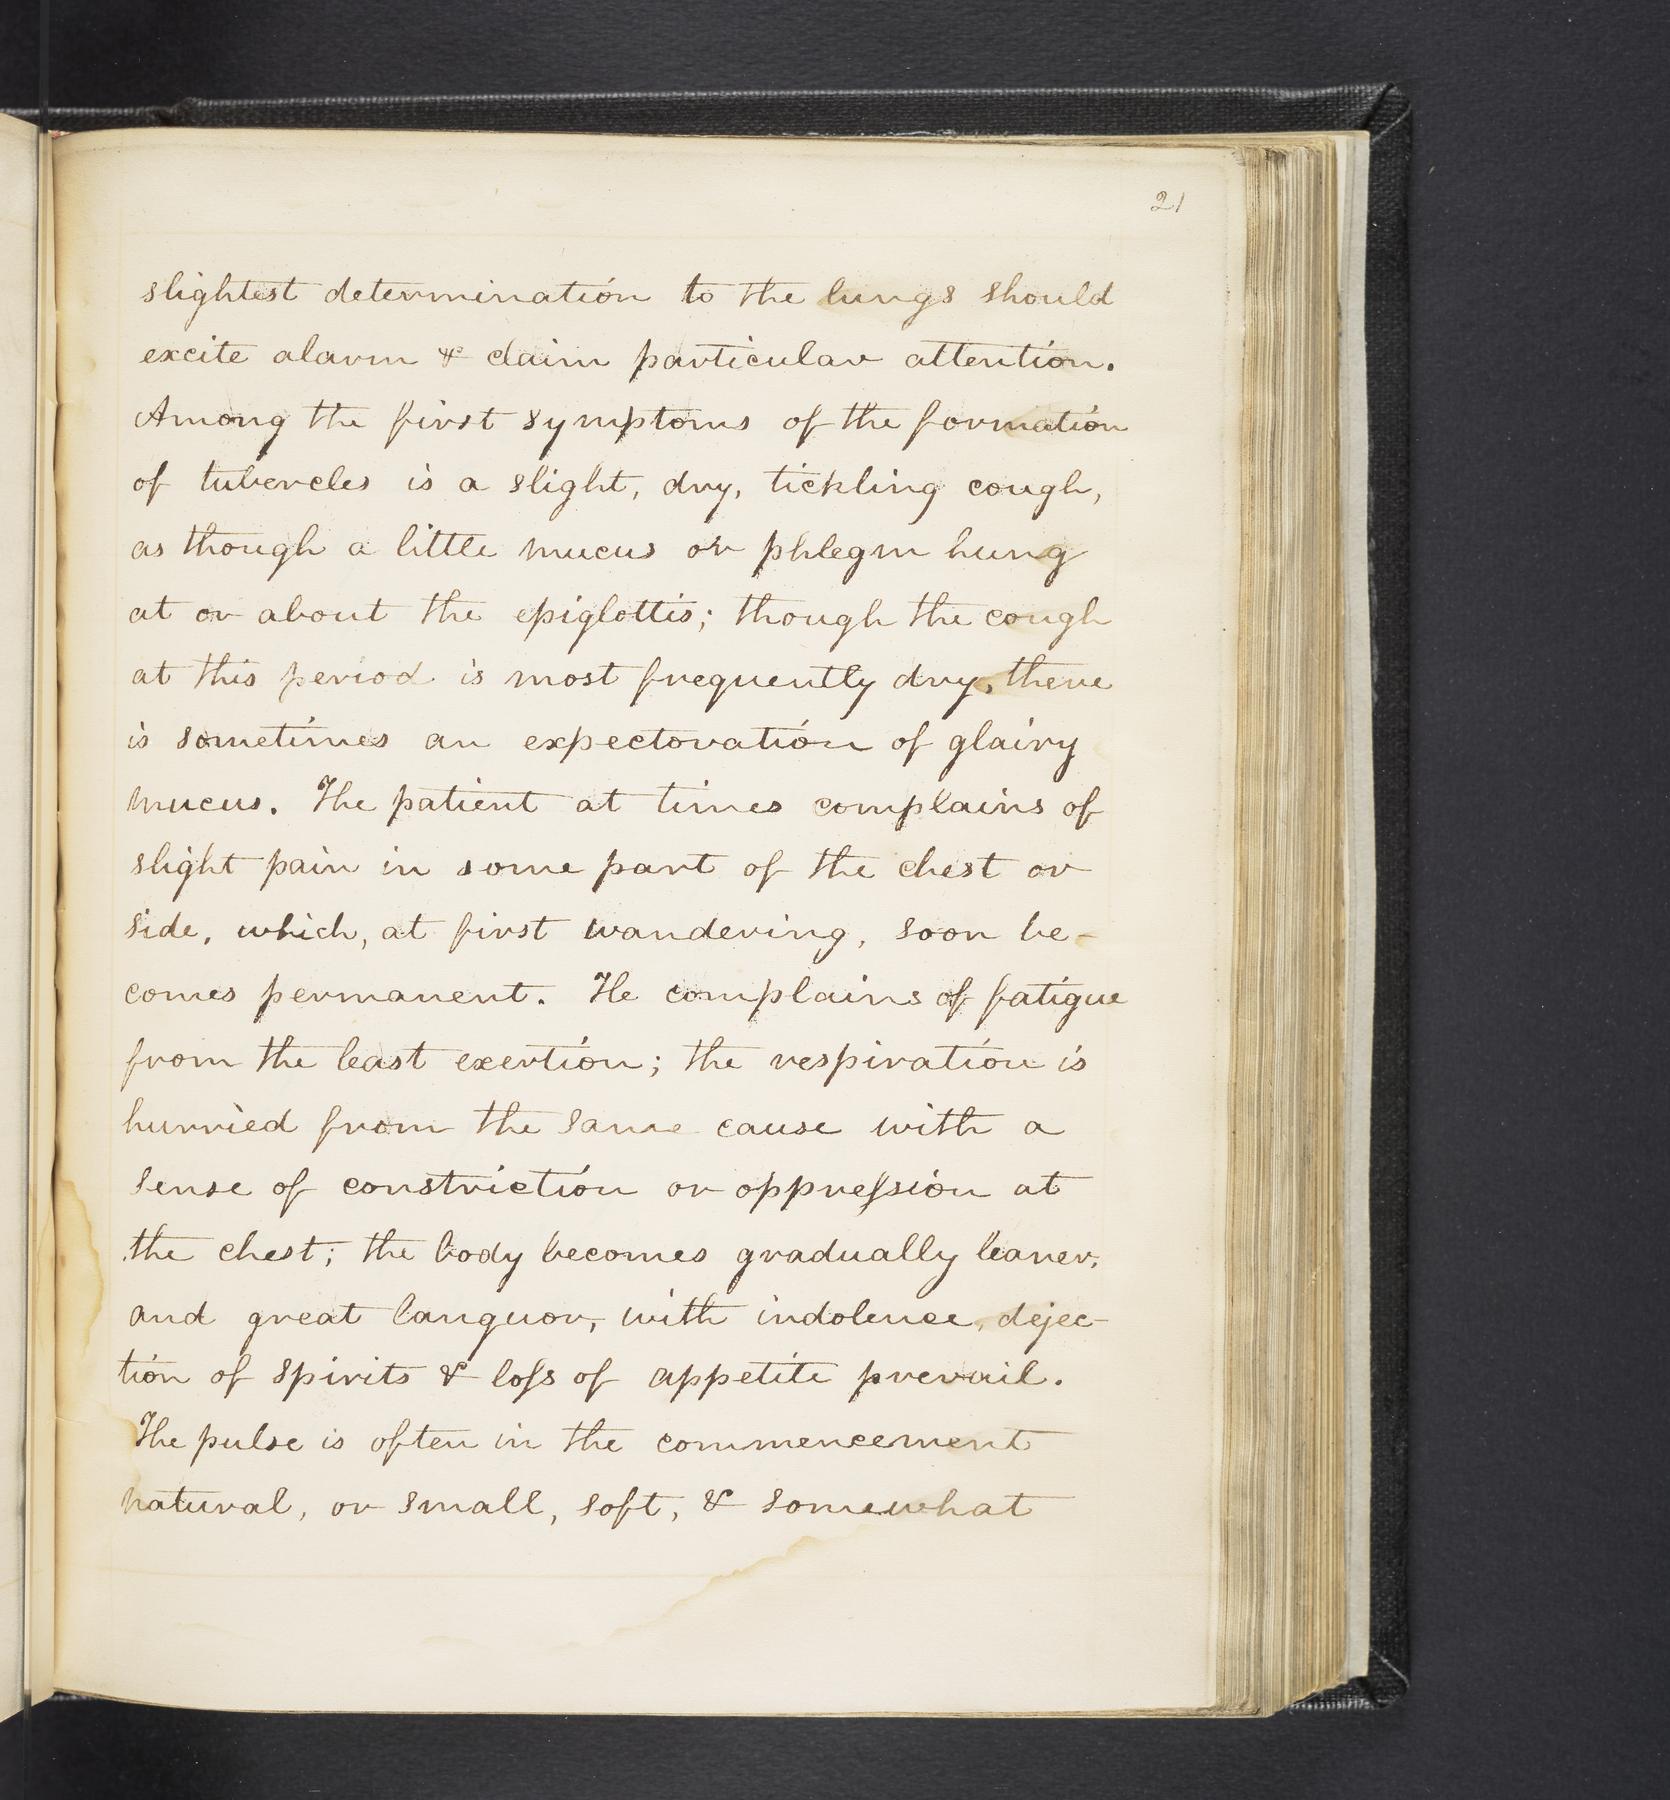 21
slightest determination to the lungs should
excite alarm & claim particular attention.
Among the first symptoms of the formation
of tubercles is a slight, dry, tickling cough,
as though a little mucus or phlegm hung
at or about the epiglottis; though the cough
at this period is most frequently dry, there
is sometimes an expectoration of glairy
mucus. The patient at times complains of
slight pain in some part of the chest or
side, which, at first wandering, soon be-
comes permanent. He complains of fatigue
from the least exertion; the respiration is
hurried from the same cause with a
sense of constriction or oppreſsion at
the chest; the body becomes gradually leaner,
and great languor, with indolence, dejec-
tion of spirits & loſs of appetite prevail.
The pulse is often in the commencement
natural, or small, soft, & somewhat